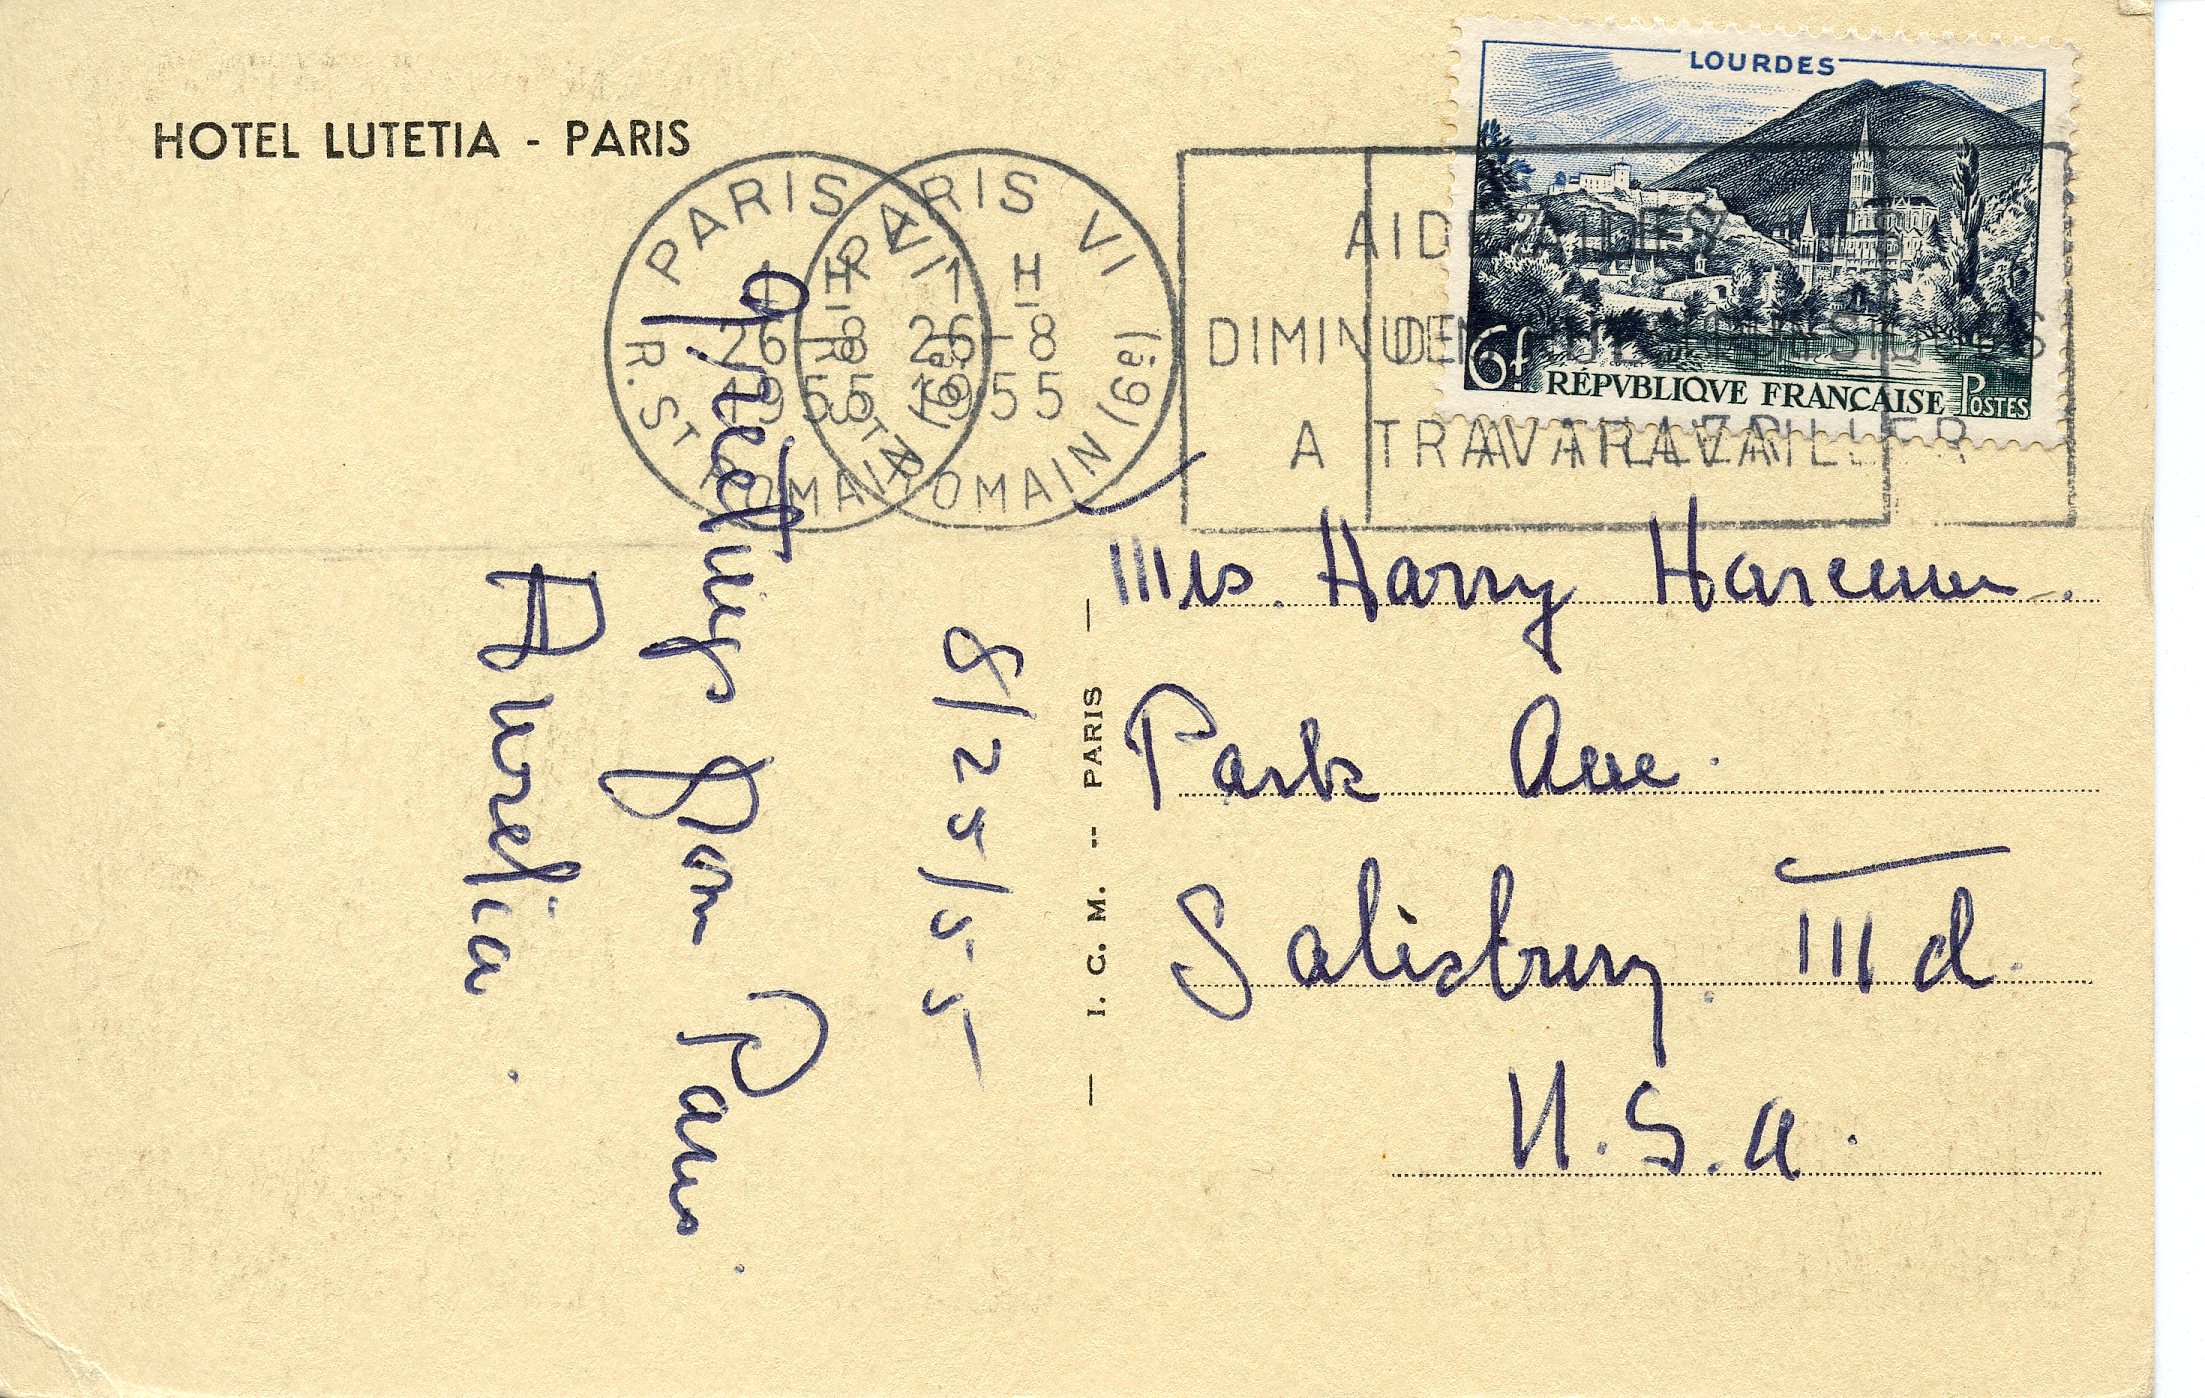 HOTEL LUTETIA - PARIS
PARIS VI
1 H
26-8
1955
R. ST ROMAIN (6e)
PARIS VI
1 H
26-8
1955
R. ST ROMAIN (6e)
AIDEZ LES
DIMINUES
A TRAVAILLER
LOURDES
6f
RÉPVBLIQVE FRANÇAISE POSTES
8/25/55
greetings from Paris.
Aurelia.
— I. C. M. -- PARIS —
Mrs. Harry
Park Ave.
Salisbury Md.
U.S.A.